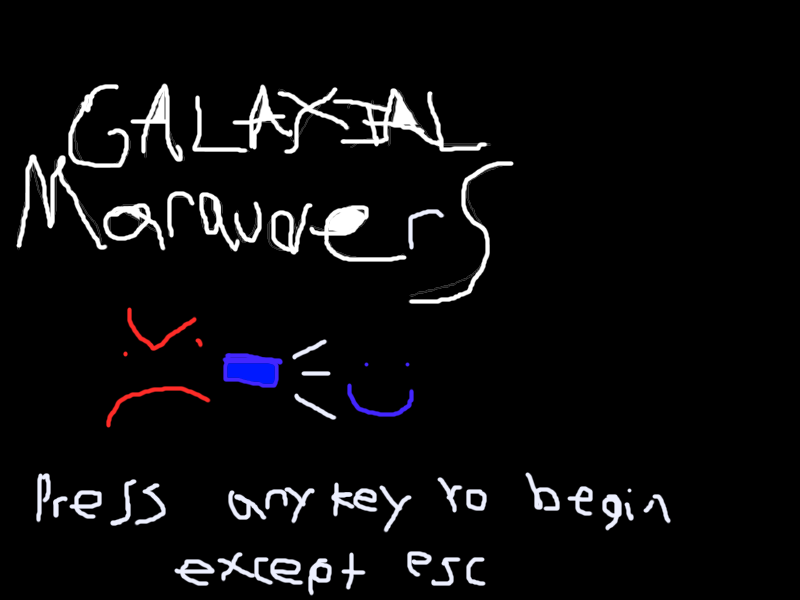 GALAXIAL
Marauders
Press any key to begin
except esc